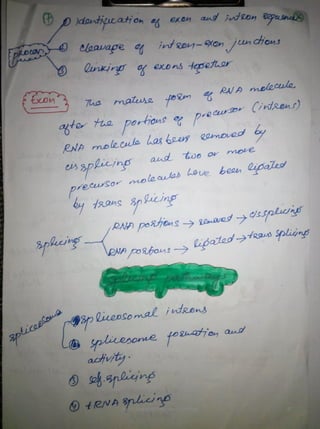 7
① Identification of exon and intron sequences
process ② cleavage of intron-exon junctions
③ linking of exons together
Exon The mature form of RNA molecule
after the portions of precursor (introns)
RNA molecule has been removed by
cis splicing and two or more
precursor molecules have been ligated
by trans splicing
RNA portions → removed → cis splicing
splicing
RNA portions → ligated → trans splicing
spliceosome ① spliceosomal introns
② spliceosome formation and
activity.
③ self splicing
④ tRNA splicing